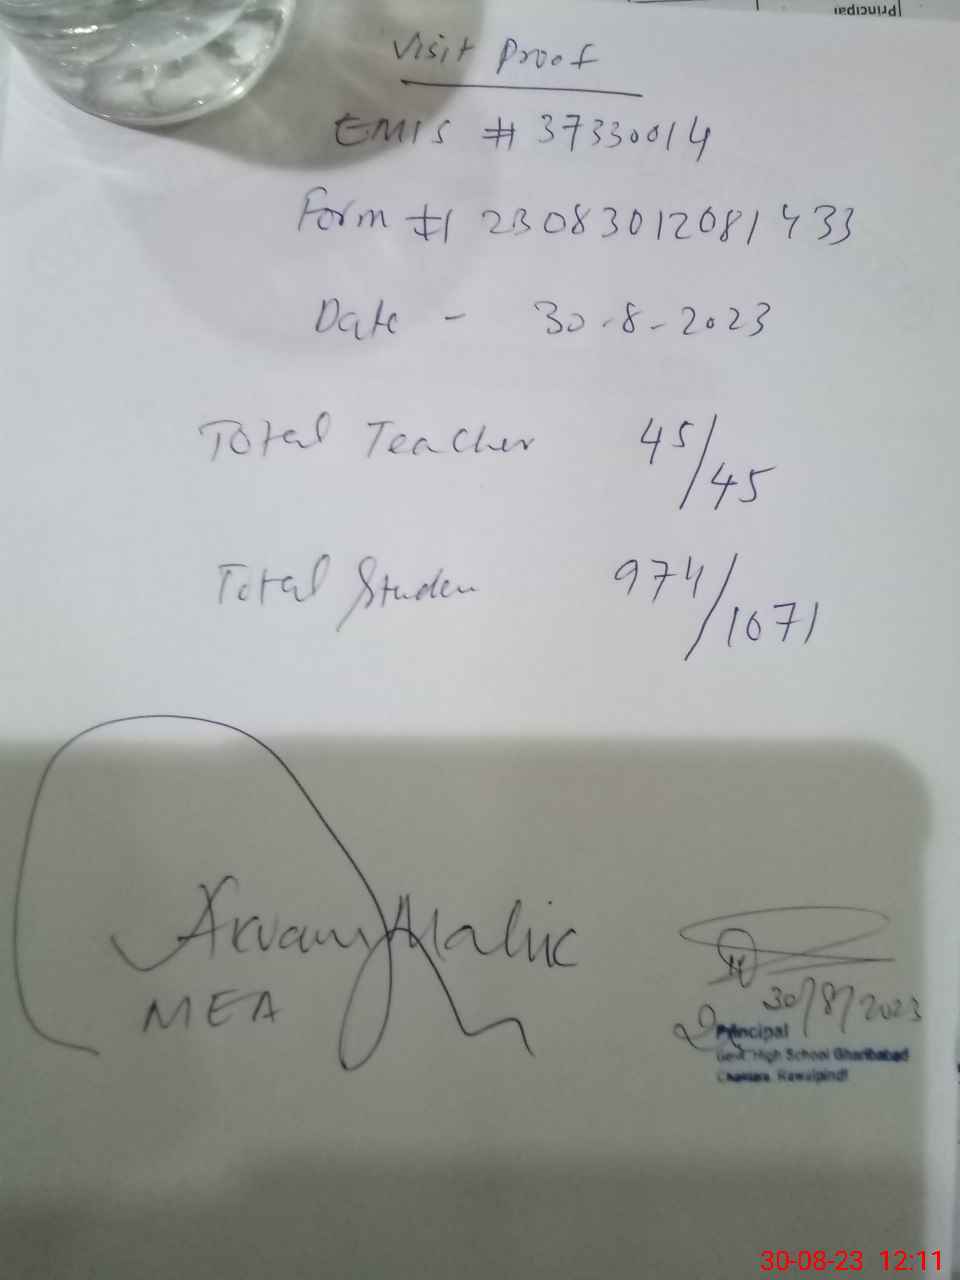 Principal
Visit Proof
EMIS # 37330014
Form # 23083012081433
Date - 30-8-2023
Total Teacher 45/45
Total Studen 974/1071
Malik
MEA
30/8/2023
Principal
Govt. High School Gharibabad
Chaklala Rawalpindi
30-08-23 12:11